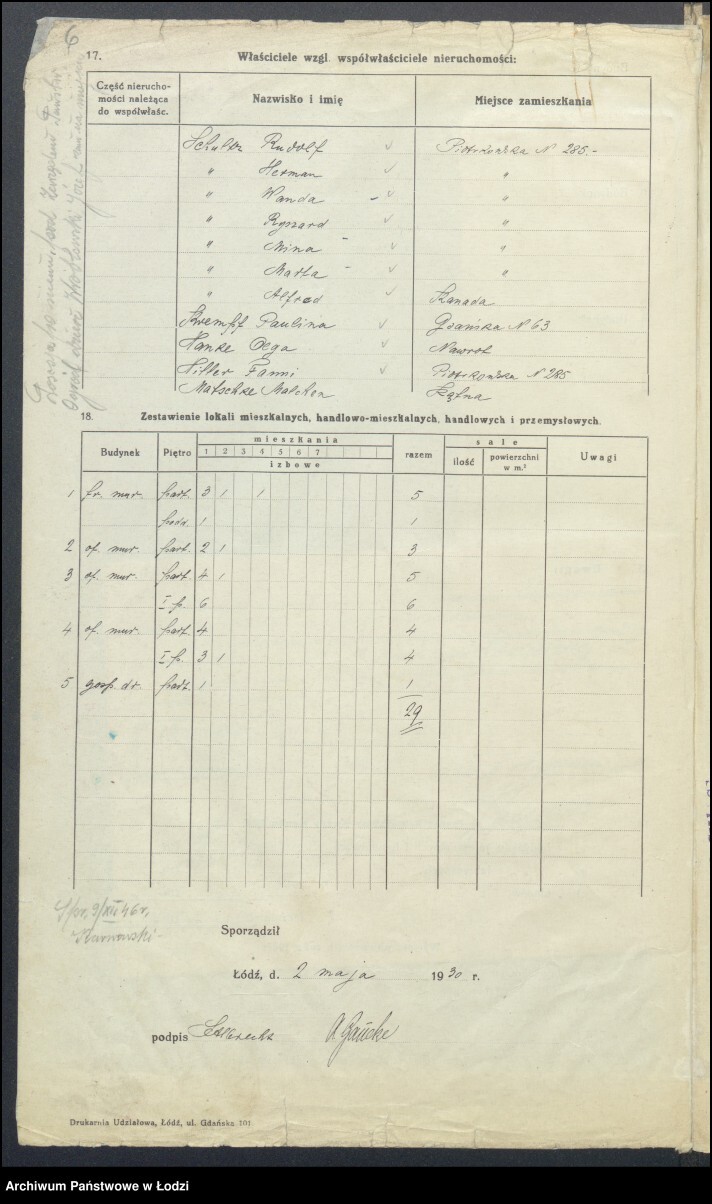 6
17. Właściciele wzgl. współwłaściciele nieruchomości:
Część nierucho-
mości należąca
do współwłaśc.
Nazwisko i imię
Miejsce zamieszkania
Schultz Rudolf Piotrkowska N 285.-
" Herman "
" Wanda "
" Ryszard "
" Mina "
" Marta "
" Alfred Kanada
Krempf Paulina Gdańska N 63
Hanke Olga Nawrot
Hiller Fanni Piotrkowska N 285
Matschke Malchen Kątna
18. Zestawienie lokali mieszkalnych, handlowo-mieszkalnych, handlowych i przemysłowych.
Budynek Piętro mieszkania razem sale Uwagi
1 2 3 4 5 6 7
izbowe
ilość powierzchni
w m.²
1 fr. mur. part. 3 1 1 5
podd. 1 1
2 of. mur. part. 2 1 3
3 of. mur. part. 4 1 5
I p. 6 6
4 of. mur. part. 4 4
I p. 3 1 4
5 gosp. dr. part. 1 1
29
Spr. 9/XII 46 r.
Sporządził
Łódź, d. 2 maja 1930 r.
podpis
Drukarnia Udziałowa, Łódź, ul. Gdańska 101
Archiwum Państwowe w Łodzi